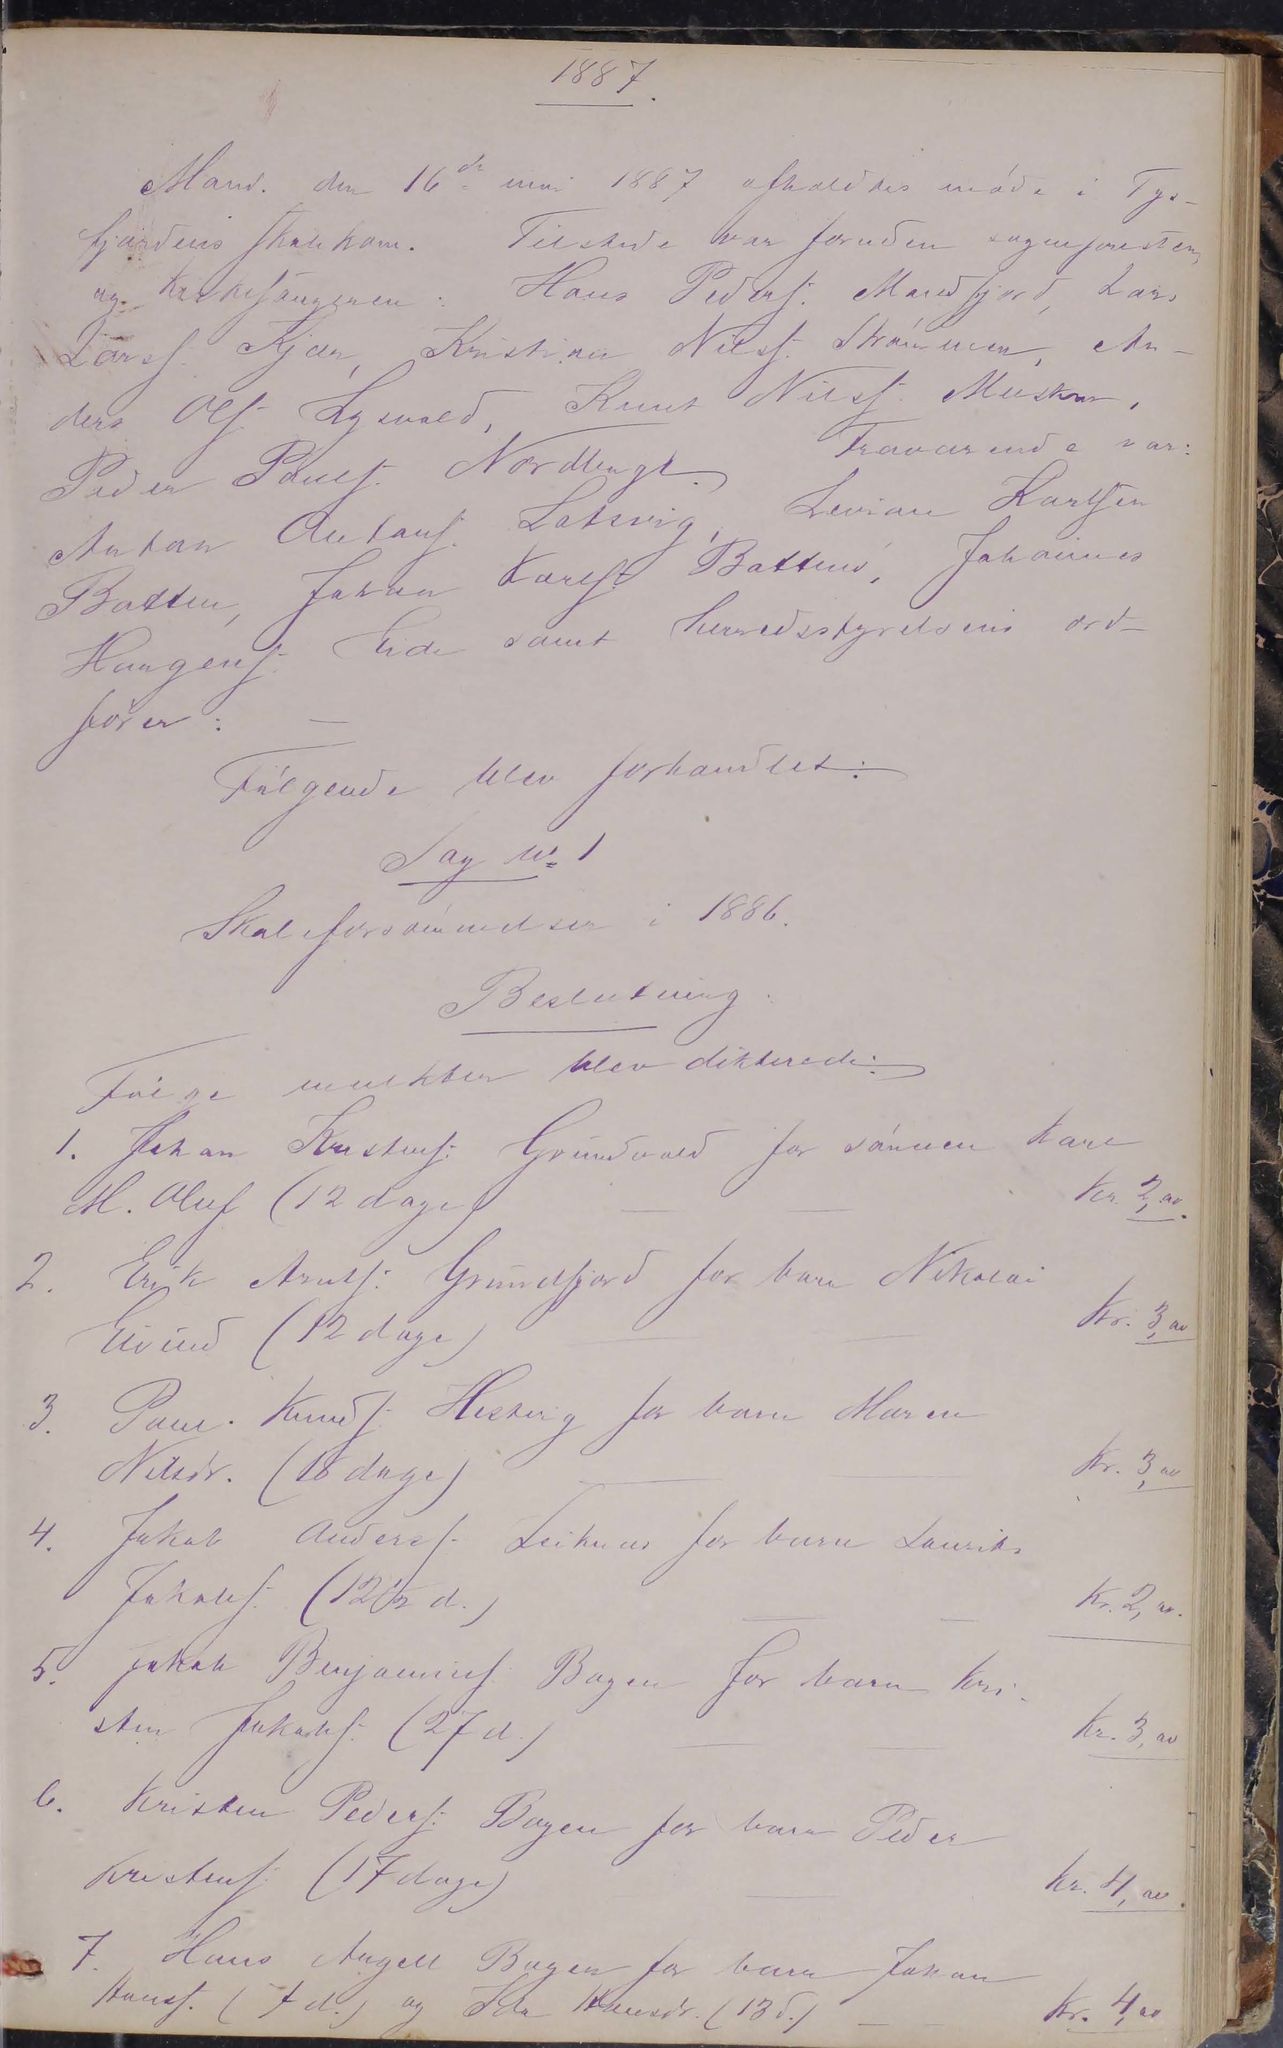 1887.
Mand. den 16de mai 1887 afholdtes möde i Tys-
fjordens skolekom. Tilstede var foruden sognepresten
og kirkesangeren: Hans Peders. Mandfjord, Lars
Larss. Kjær, Kristian Nilss. Strömmen, An-
ders Ols. Lysvold, Knut Nilss. Musken,
Peder Pauls. Nordbugt. Fraværende var:
Anton Antons. Lotsvig, Levian Karlsen
Botten, Johan Karls. Bottens, Johannes
Haagens. Eide samt herredsstyrelsens ord-
förer: —
Fölgende blev forhandlet:
Sag No 1
Skoleforsömmelser i 1886.
Beslutning:
Fölge mulkter blev dikterede:
1. Johan Kristens. Grundvold for sönnen Karl
M. Oluf (12 dage) — — Kr. 2,00.
2. Erik Arnts. Grundfjord for barn Nikolai
Eivind (12 dage) — — Kr. 3,00
3. Paul Knuds. Hestvig for barn Maren
Nilsdr. (18 dage) — — Kr. 3,00
4. Jakob Anders. Leiknes for barn Laurits
Jakobs. (12½ d.) — — Kr. 2,00.
5. Jakob Benjamins. Bogen for barn Kri-
sten Jakobs. (27 d.) — — Kr. 3,00
6. Kristen Peders. Bogen for barn Peder
Kristens. (17 dage) — Kr. 4,00.
7. Hans Angell Bogen for barn Johan
Hans. (7 d.) og Ida Hansdr. (13 d.) — — Kr. 4,00